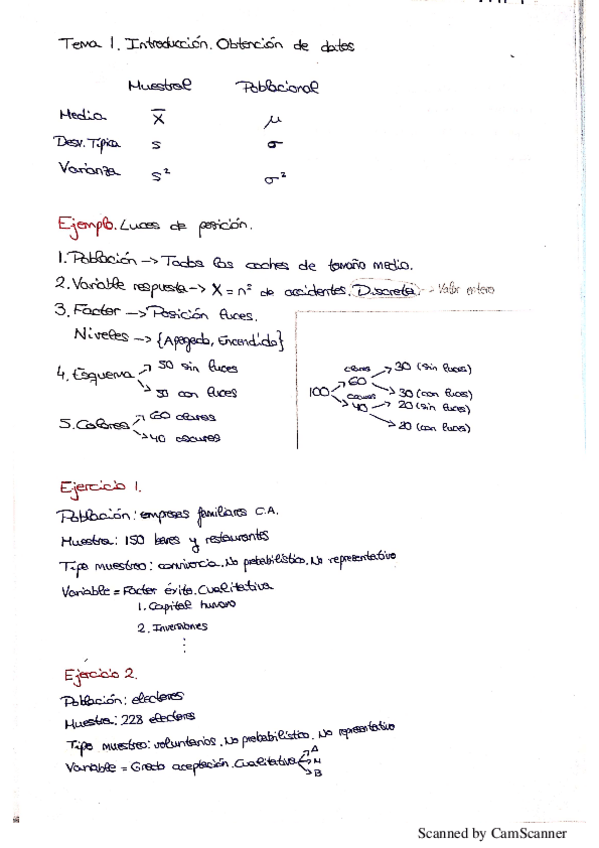 Tema 1. Introducción. Obtención de datos
Muestral Poblacional
Media x̅ μ
Desv. Típica s σ
Varianza s² σ²
Ejemplo. Luces de posición.
1. Población -> Todos los coches de tamaño medio.
2. Variable respuesta -> X = nº de accidentes. Discreta -> Valor entero
3. Factor -> Posición luces.
Niveles -> {Apagado, Encendido}
4. Esquema -> 50 sin luces
-> 50 con luces
5. Colores -> 60 claros
-> 40 oscuros
100 claros 60 -> 30 (sin luces)
-> 30 (con luces)
oscuros 40 -> 20 (sin luces)
-> 20 (con luces)
Ejercicio 1.
Población: empresas familiares C.A.
Muestra: 150 bares y restaurantes
Tipo muestreo: . No probabilístico. No representativo
Variable = Factor éxito. Cualitativa
1. Capital humano
2. Inversiones
⋮
Ejercicio 2.
Población: electores
Muestra: 228 electores
Tipo muestreo: voluntarios. No probabilístico. No representativo
Variable = Grado aceptación. Cualitativa -> A
-> N
-> B
Scanned by CamScanner